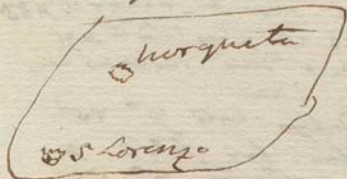 horqueta
S Lorenzo